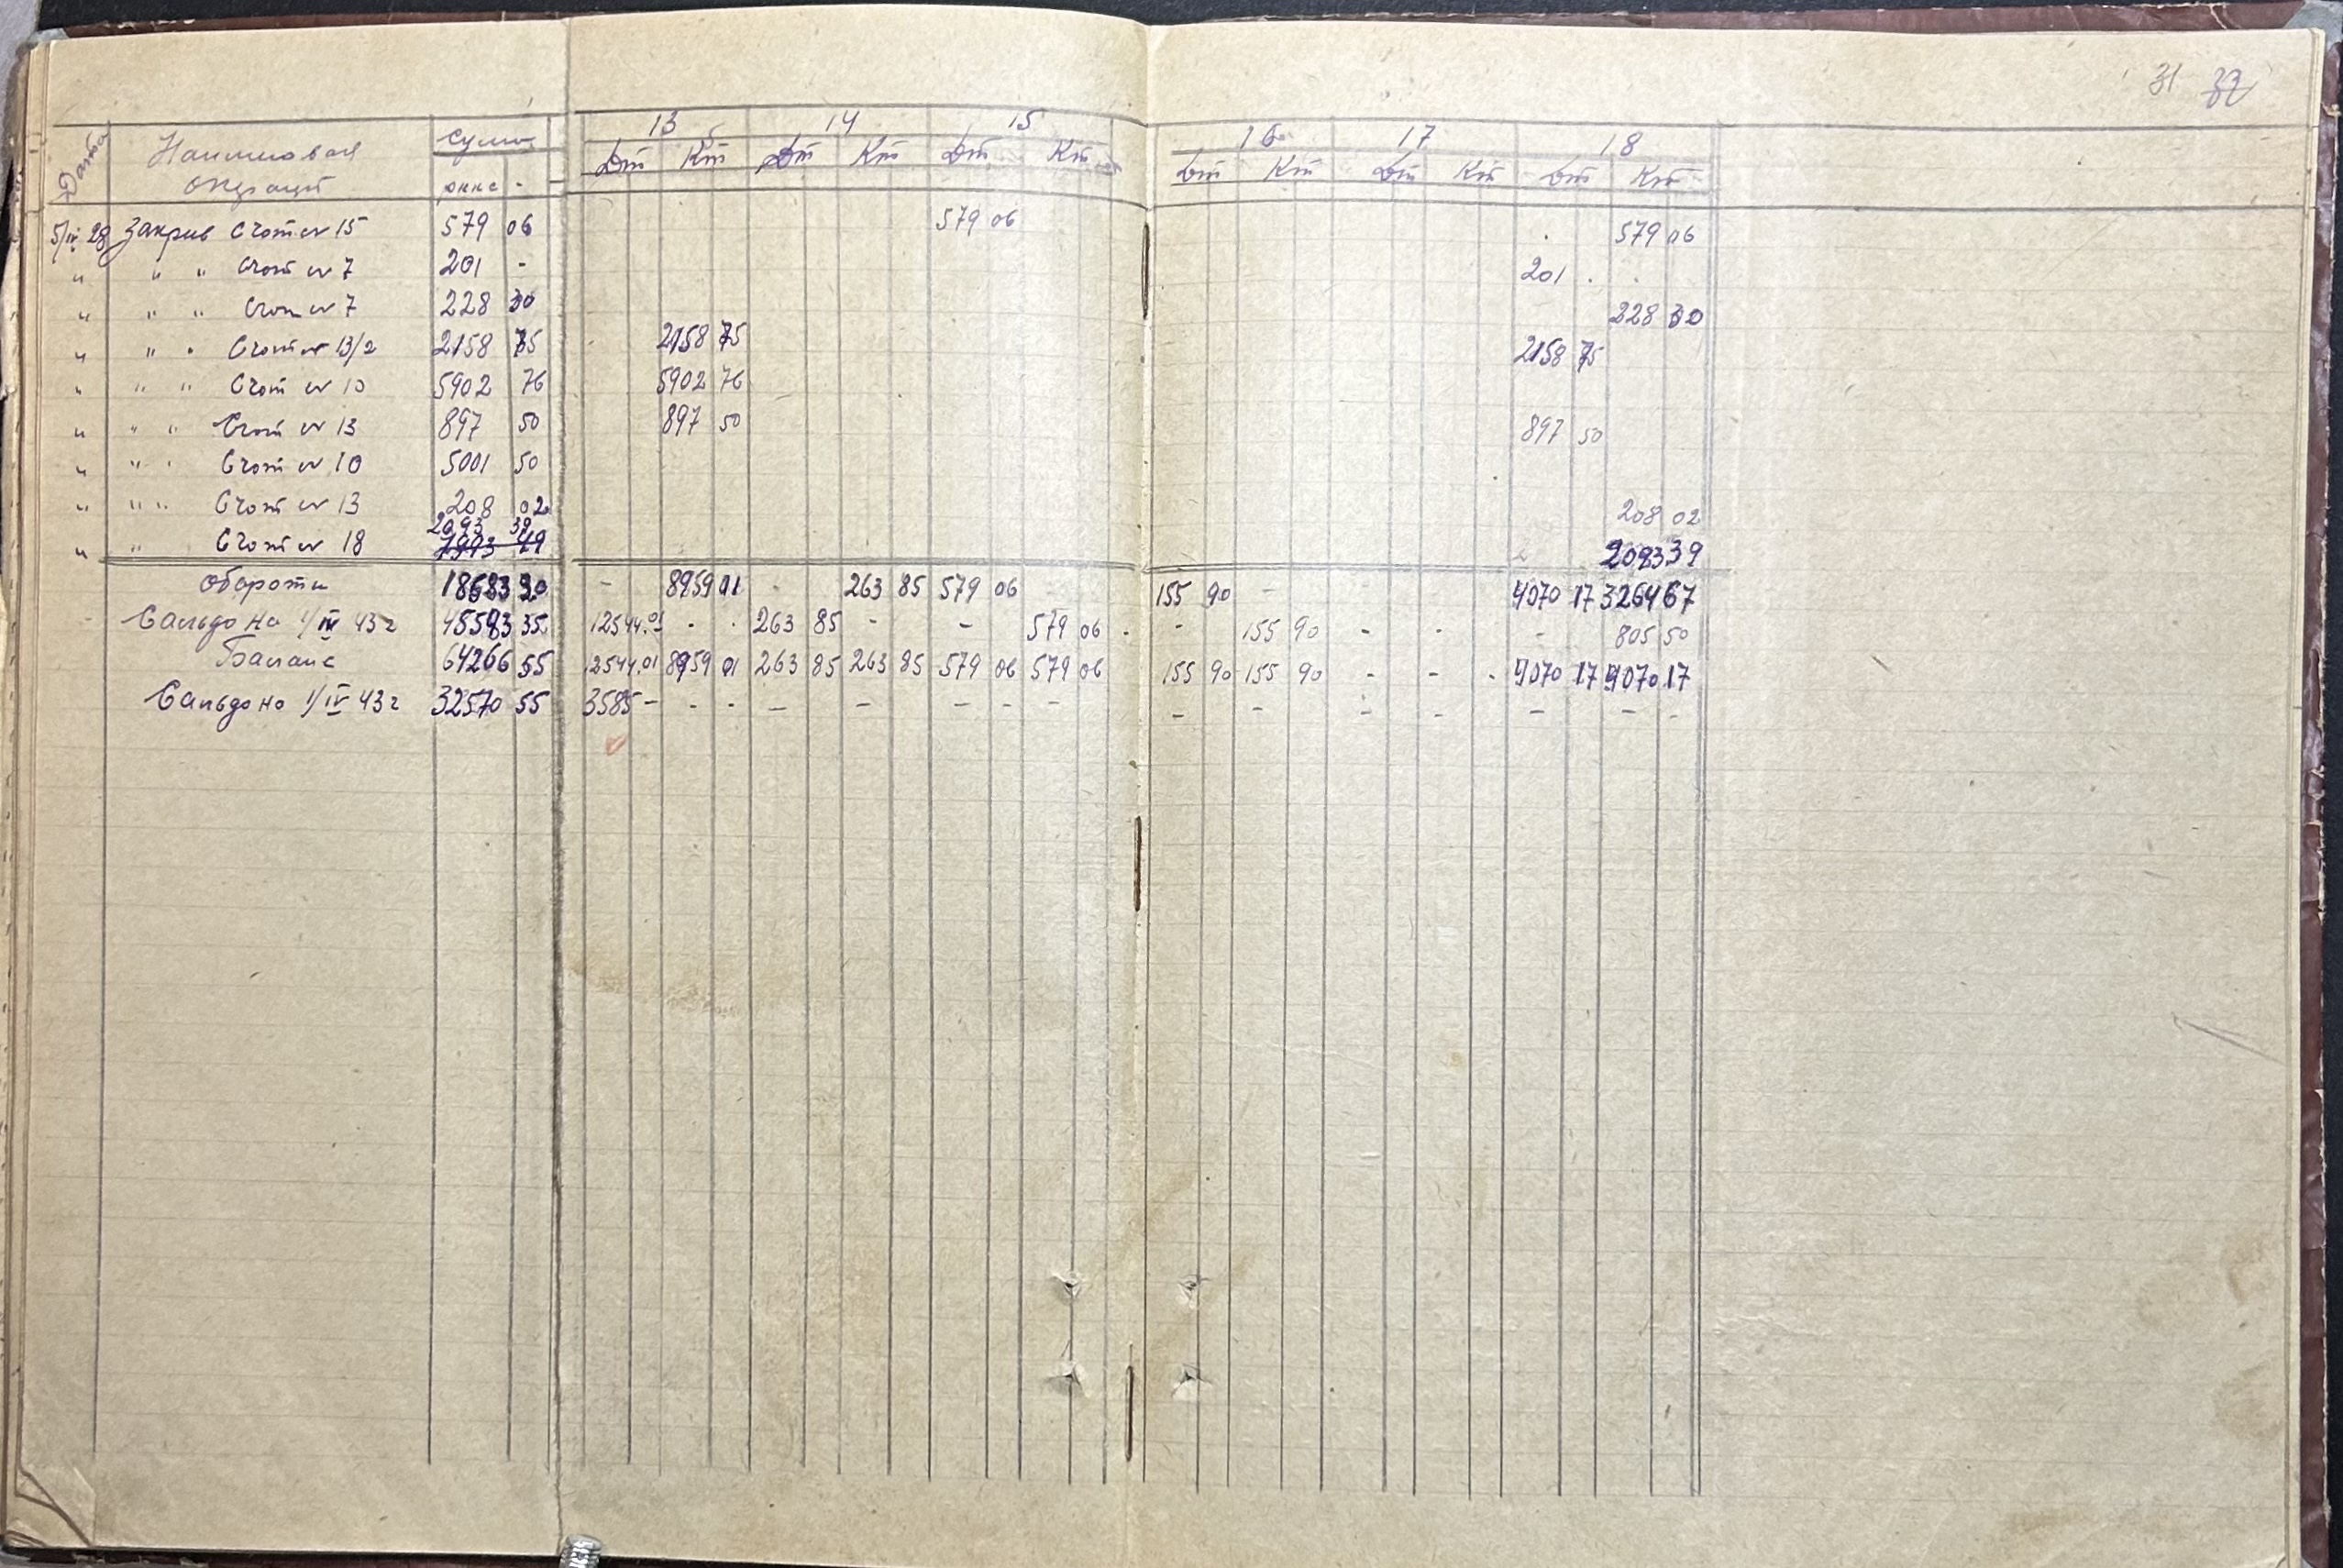 31 32
Дата Наименован сума 13 14 15 16 17 18
операций Дт Кт Дт Кт Дт Кт Дт Кт Дт Кт Дт Кт
5/IV 28 Закрив Счот № 15 579 06 579 06 579 06
" " " Счот № 7 201 - 201 -
" " " Счот № 7 228 30 228 30
" " " Счот № 13/2 2158 75 2158 75 2158 75
" " " Счот № 10 5902 76 5902 76
" " " Счот № 13 897 50 897 50 897 50
" " " Счот № 10 5001 50
" " " Счот № 13 208 02 208 02
" " Счот № 18 2093 39 2093 39
обороти 18683 20 - 8959 01 - 263 85 579 06 - 155 90 - 4070 17 3264 67
Сальдо на 1/IV 43 г 45583 35 12544.01 - - 263 85 - - 579 06 - 155 90 - - - 805 50
Баланс 64266 55 12544.01 8959 01 263 85 263 85 579 06 579 06 155 90 155 90 - - 4070 17 4070 17
Сальдо на 1/IV 43 г 32570 55 3585 - - - - - - - - - - - - - - - -